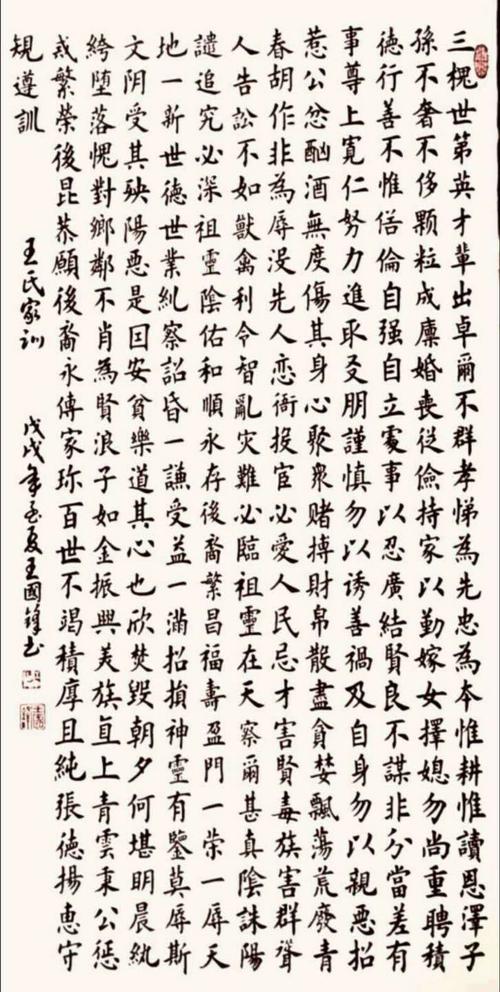 三槐世第英才輩出卓爾不群孝悌為先忠為本惟耕惟讀恩澤子
孫不奢不侈顆粒成廩婚喪從儉持家以勤嫁女擇媳勿尚重聘積
德行善不惟倫自强自立處事以忍廣結賢良不謀非分當差有
事尊上寬仁努力進取交朋謹慎勿以誘善禍及自身勿以親惡招
惹公忿酗酒無度傷其身心聚衆賭摶財帛散盡貪婪飄蕩荒廢青
春胡作非為辱没先人恋衙投官必愛人民忌才害賢毒族害群聳
人告訟不如獸禽利令智亂灾難必臨祖靈在天察爾甚真陰誅陽
譴追究必深祖靈陰佑和順永存後裔繁昌福壽盈門一荣一辱天
地一新世德世業糺察詔昏一謙受益一滿招損神靈有鑒莫辱斯
文阴受其殃陽惡是囙安貧樂道其心也欣焚毀朝夕何堪明晨紈
絝堕落愧對鄉鄰不肖為賢浪子如金振興美族亘上青雲秉公懲
戒繁榮後昆恭願後裔永傳家珎百世不竭積厚且純張德揚惠守
規遵訓
王氏家训
戊戌年夏王國鋒书